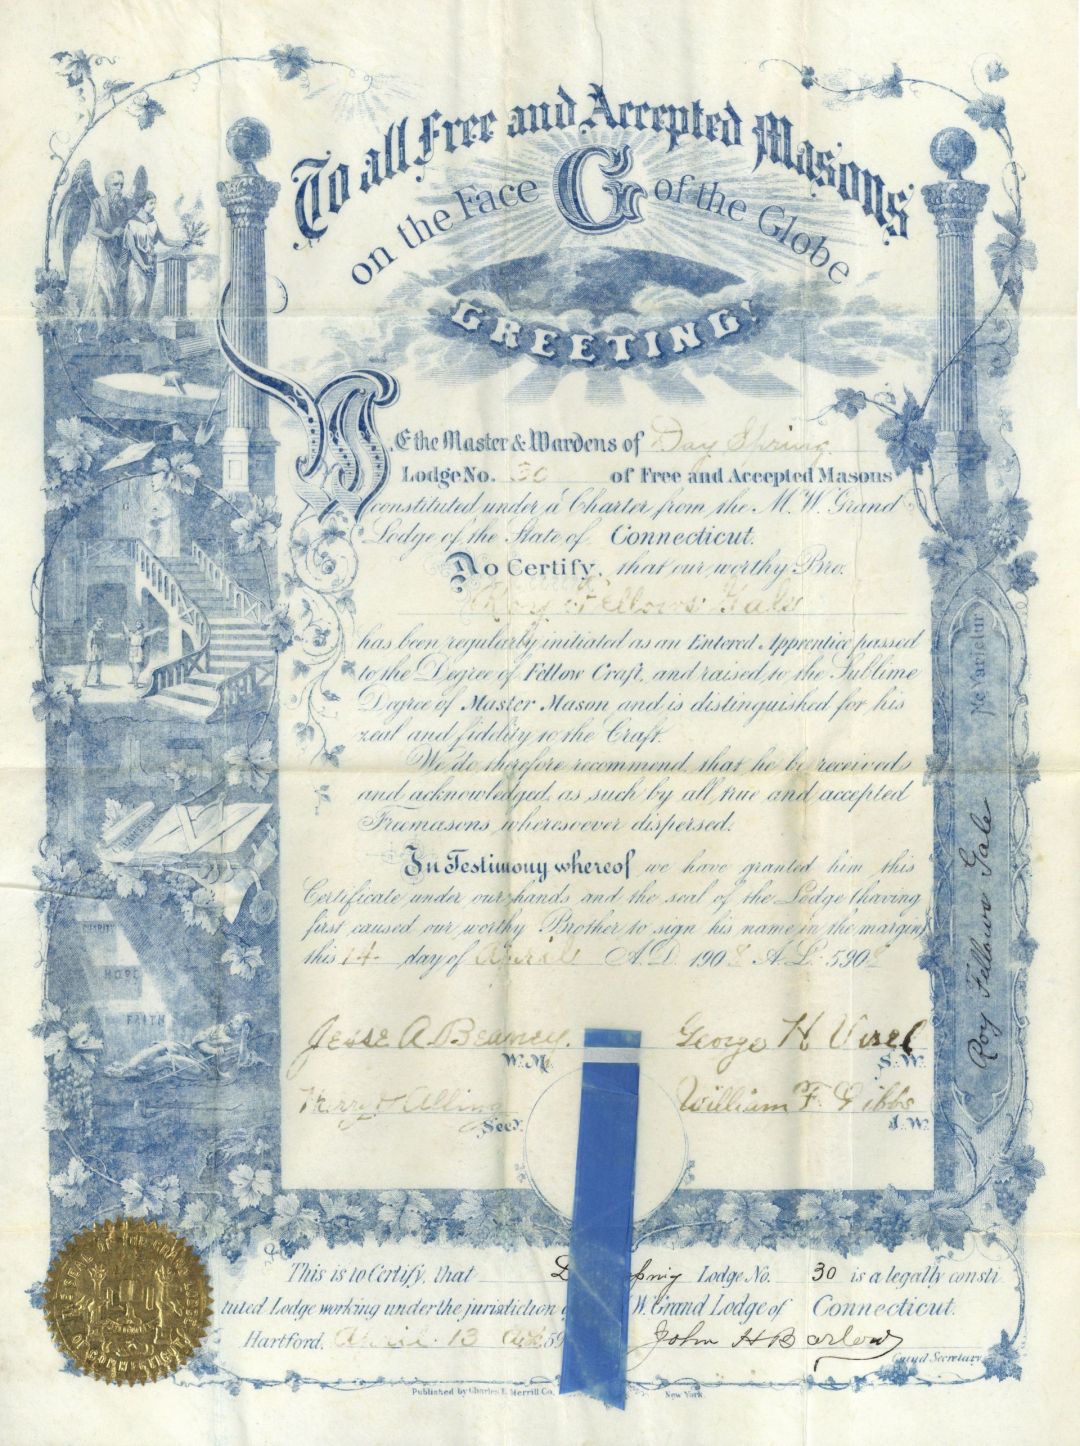 To all Free and Accepted Masons
on the Face G of the Globe
GREETING!
WE the Master & Wardens of Day Spring
Lodge No. 30 of Free and Accepted Masons
constituted under a Charter from the M. W. Grand
Lodge of the State of Connecticut.
Do Certify, that our worthy Bro.
Roy Fellows Gale
has been regularly initiated as an Entered Apprentice passed
to the Degree of Fellow Craft, and raised to the Sublime
Degree of Master Mason and is distinguished for his
zeal and fidelity to the Craft.
We do therefore recommend that he be received
and acknowledged as such by all true and accepted
Freemasons wheresoever dispersed.
In Testimony whereof we have granted him this
Certificate under our hands and the seal of the Lodge (having
first caused our worthy Brother to sign his name in the margin)
this 14 day of April A. D. 1908 A. L. 5908
Jesse A. Beamey. W. M.
George H. S. W.
Harry Alling Secy.
William F. Gibbs J. W.
Ne Varietur
Roy Fellows Gale
CHARITY
HOPE
FAITH
This is to Certify, that Lodge No. 30 is a legally consti
tuted Lodge working under the jurisdiction W. Grand Lodge of Connecticut.
Hartford, April 13 59
John H Barlow
Grand Secretary
Published by Charles E. Merrill Co. New York.